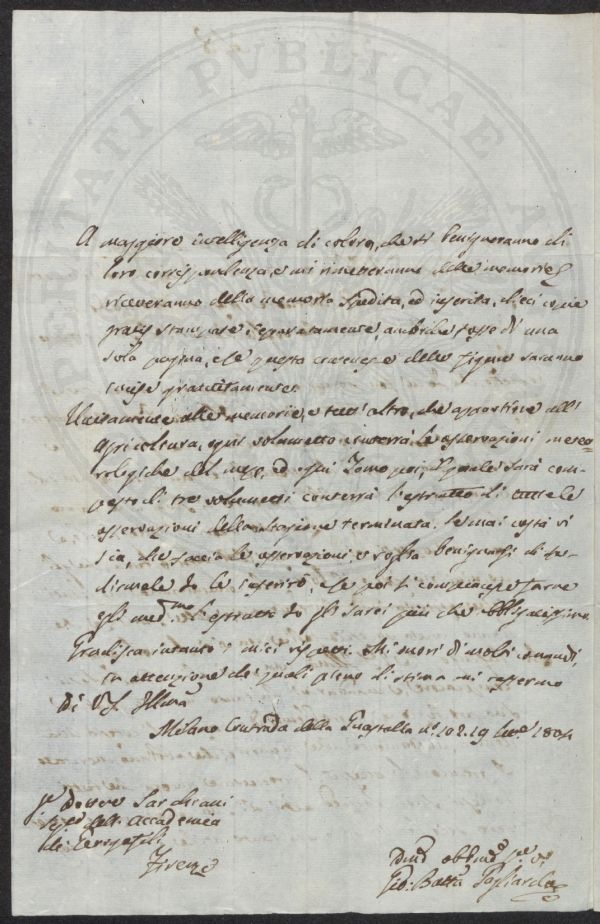 PROSPERITATI PVBLICAE A
A maggiore intelligenza di coloro, che si benigneranno di
loro corrispondenza, e mi rimetteranno delle memorie,
riceveranno della memoria spedita, ed inserita, dieci copie
gratis stampate separatamente, ambrché fosse di una
sola pagina, e se questa delle figure saranno
gratuitamente.
Unitamente alle memorie, e tutt'altro, che appartiene all'
Agricoltura, ogni volumetto conterrà le osservazioni meteo-
rologiche del mese, ed ogni Tomo poi, il quale sarà com-
posto di tre volumetti conterrà l'estratto di tutte le
osservazioni della stagione terminata. Se mai costà vi
sia, che faccia le osservazioni, e voglia benignarsi di
io le inserirò, e se poi si compiacesse farne
egli med.mo l'estratto io gli sarei più che obbligatissimo.
Gradisca intanto i miei rispetti. Mi onori di molti comandi,
in attenzione de' quali pieno di stima mi raffermo
Di V.S. Illma
Milano Contrada della Guastalla n.º 102. 19 1804
Sarchiani
Seg.º dell'Accademia
de' Georgofili
Firenze
Gio: Batta Gagliardo